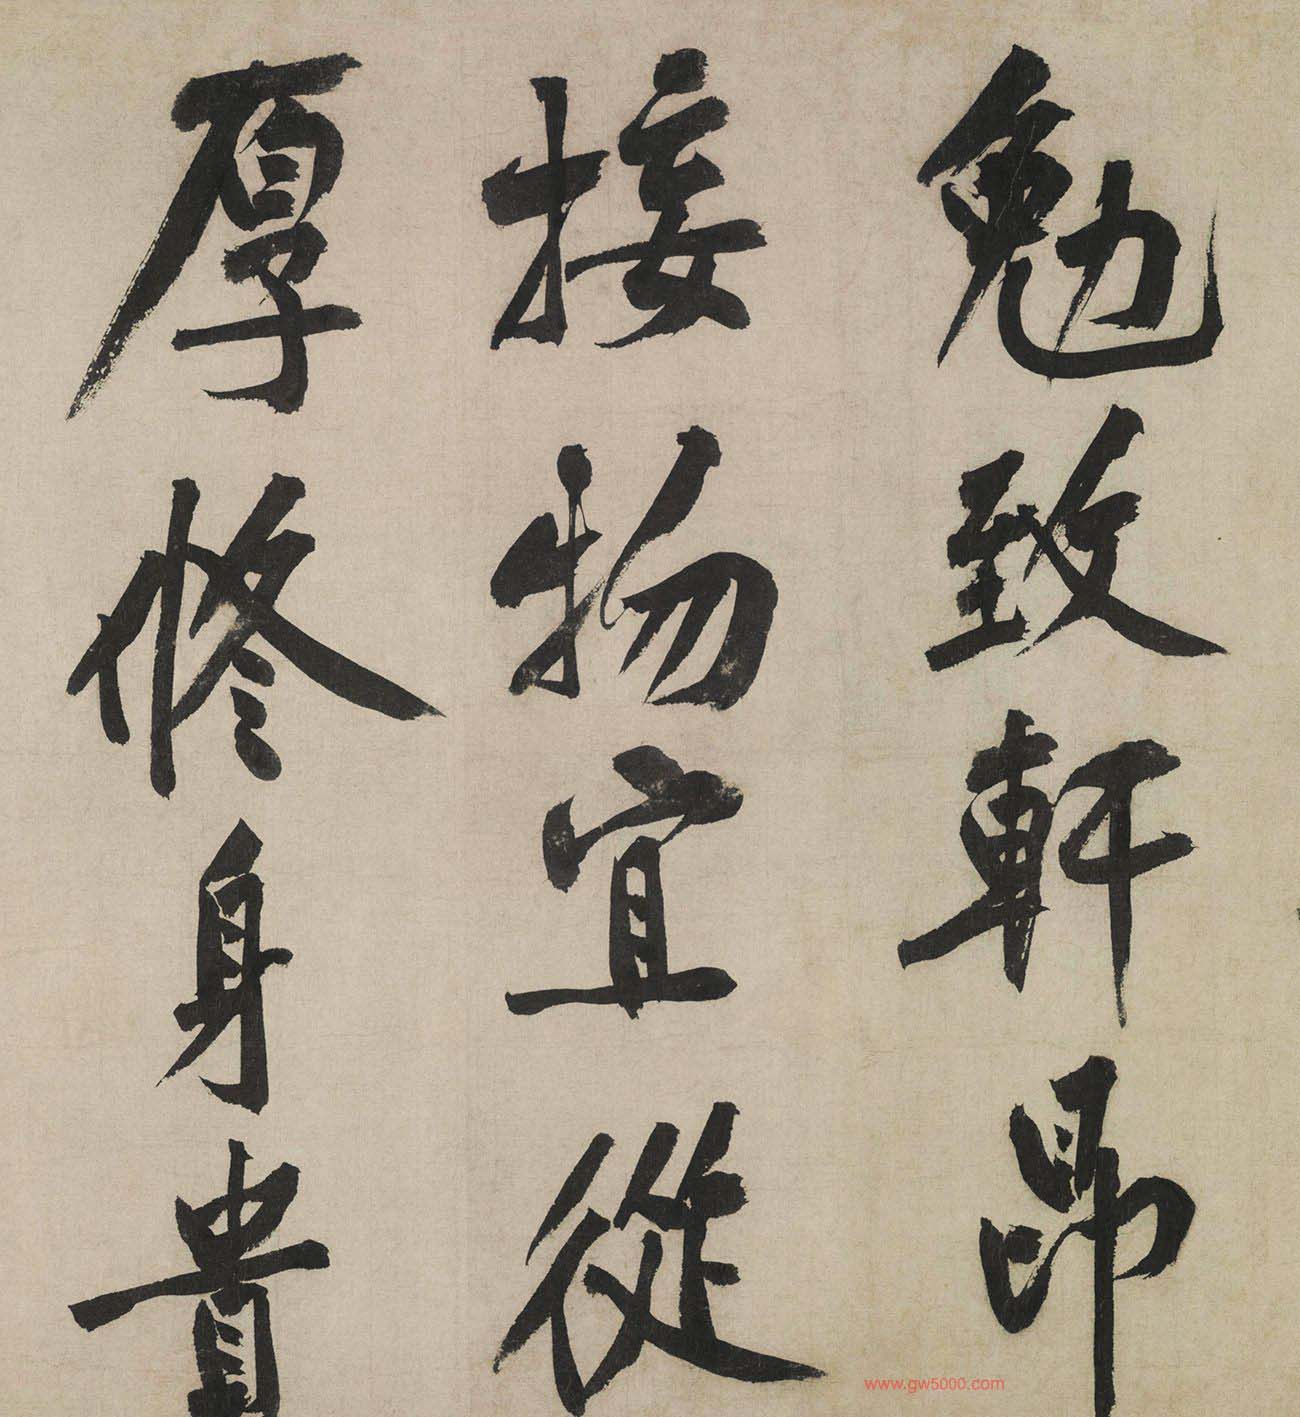 勉致軒昂
接物宜從
厚修身貴
www.gw5000.com